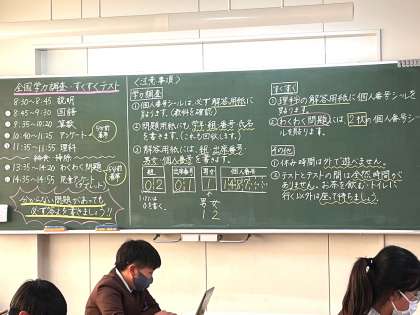 全国学力調査・すくすくテスト
8:30〜8:45 説明
8:45〜9:30 国語
9:35〜10:20 算数
10:40〜11:25 アンケート
11:35〜 理科
給食・掃除
13:35〜14:20 わくわく問題
14:35〜14:55 児童アンケート
分からない問題があっても
必ず答えを書きましょう!!
〈注意事項〉
学力調査
①個人番号シールは、必ず解答用紙に
貼ります。(教科を確認)
②問題用紙にも学年、組、番号、氏名
を書きます。(これも回収します。)
③解答用紙には、組、出席番号、
男女、個人番号を書きます。
組 出席番号 男女 個人番号
02 01 1
男 女
1 2
すくすく
①理科の解答用紙に個人番号シールを
貼ります。
②わくわく問題には、2枚の個人番号シー
ルを貼ります。
その他
①休み時間は外で遊べません。
②テストとテストの間は全然時間が
ありません。お茶を飲む・トイレに
行く以外は座って待ちましょう。